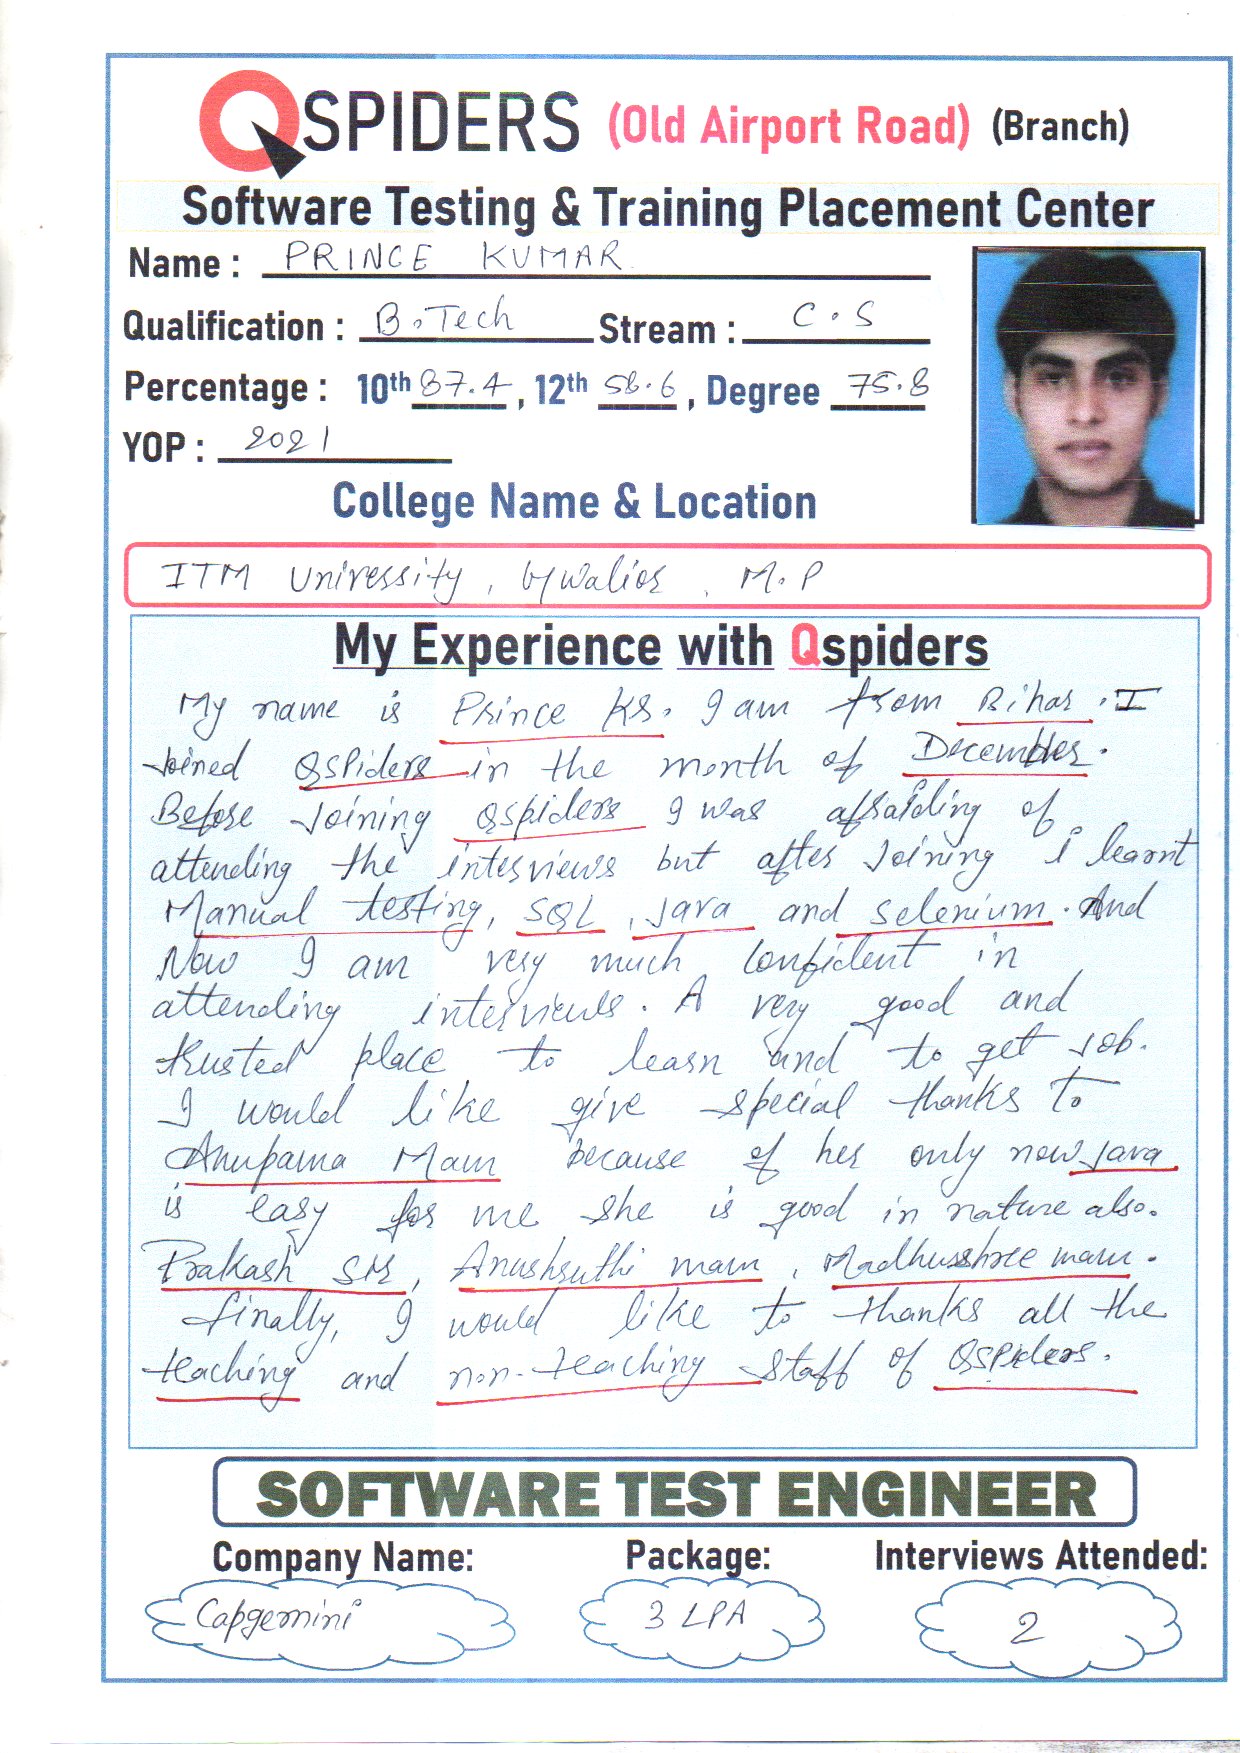 QSPIDERS (Old Airport Road) (Branch)
Software Testing & Training Placement Center
Name : PRINCE KUMAR
Qualification : B.Tech Stream : C.S
Percentage : 10th 87.4 , 12th 58.6 , Degree 75.8
YOP : 2021
College Name & Location
ITM University, Gwalior, M.P
My Experience with Qspiders
My name is Prince Kr. I am from Bihar. I
Joined QSPiders in the month of December.
Before Joining Qspiders I was afraiding of
attending the interviews but after Joining i learnt
Manual testing, SQL, Java and selenium. And
Now I am very much confident in
attending interviews. A very good and
trusted place to learn and to get Job.
I would like give special thanks to
Anupama Mam because of her only now Java
is easy for me she is good in nature also.
Prakash SIR, Anushruthi mam, Madhushree mam.
finally, I would like to thanks all the
teaching and non-teaching staff of QSPiders.
SOFTWARE TEST ENGINEER
Company Name: Package: Interviews Attended:
Capgemini 3 LPA 2